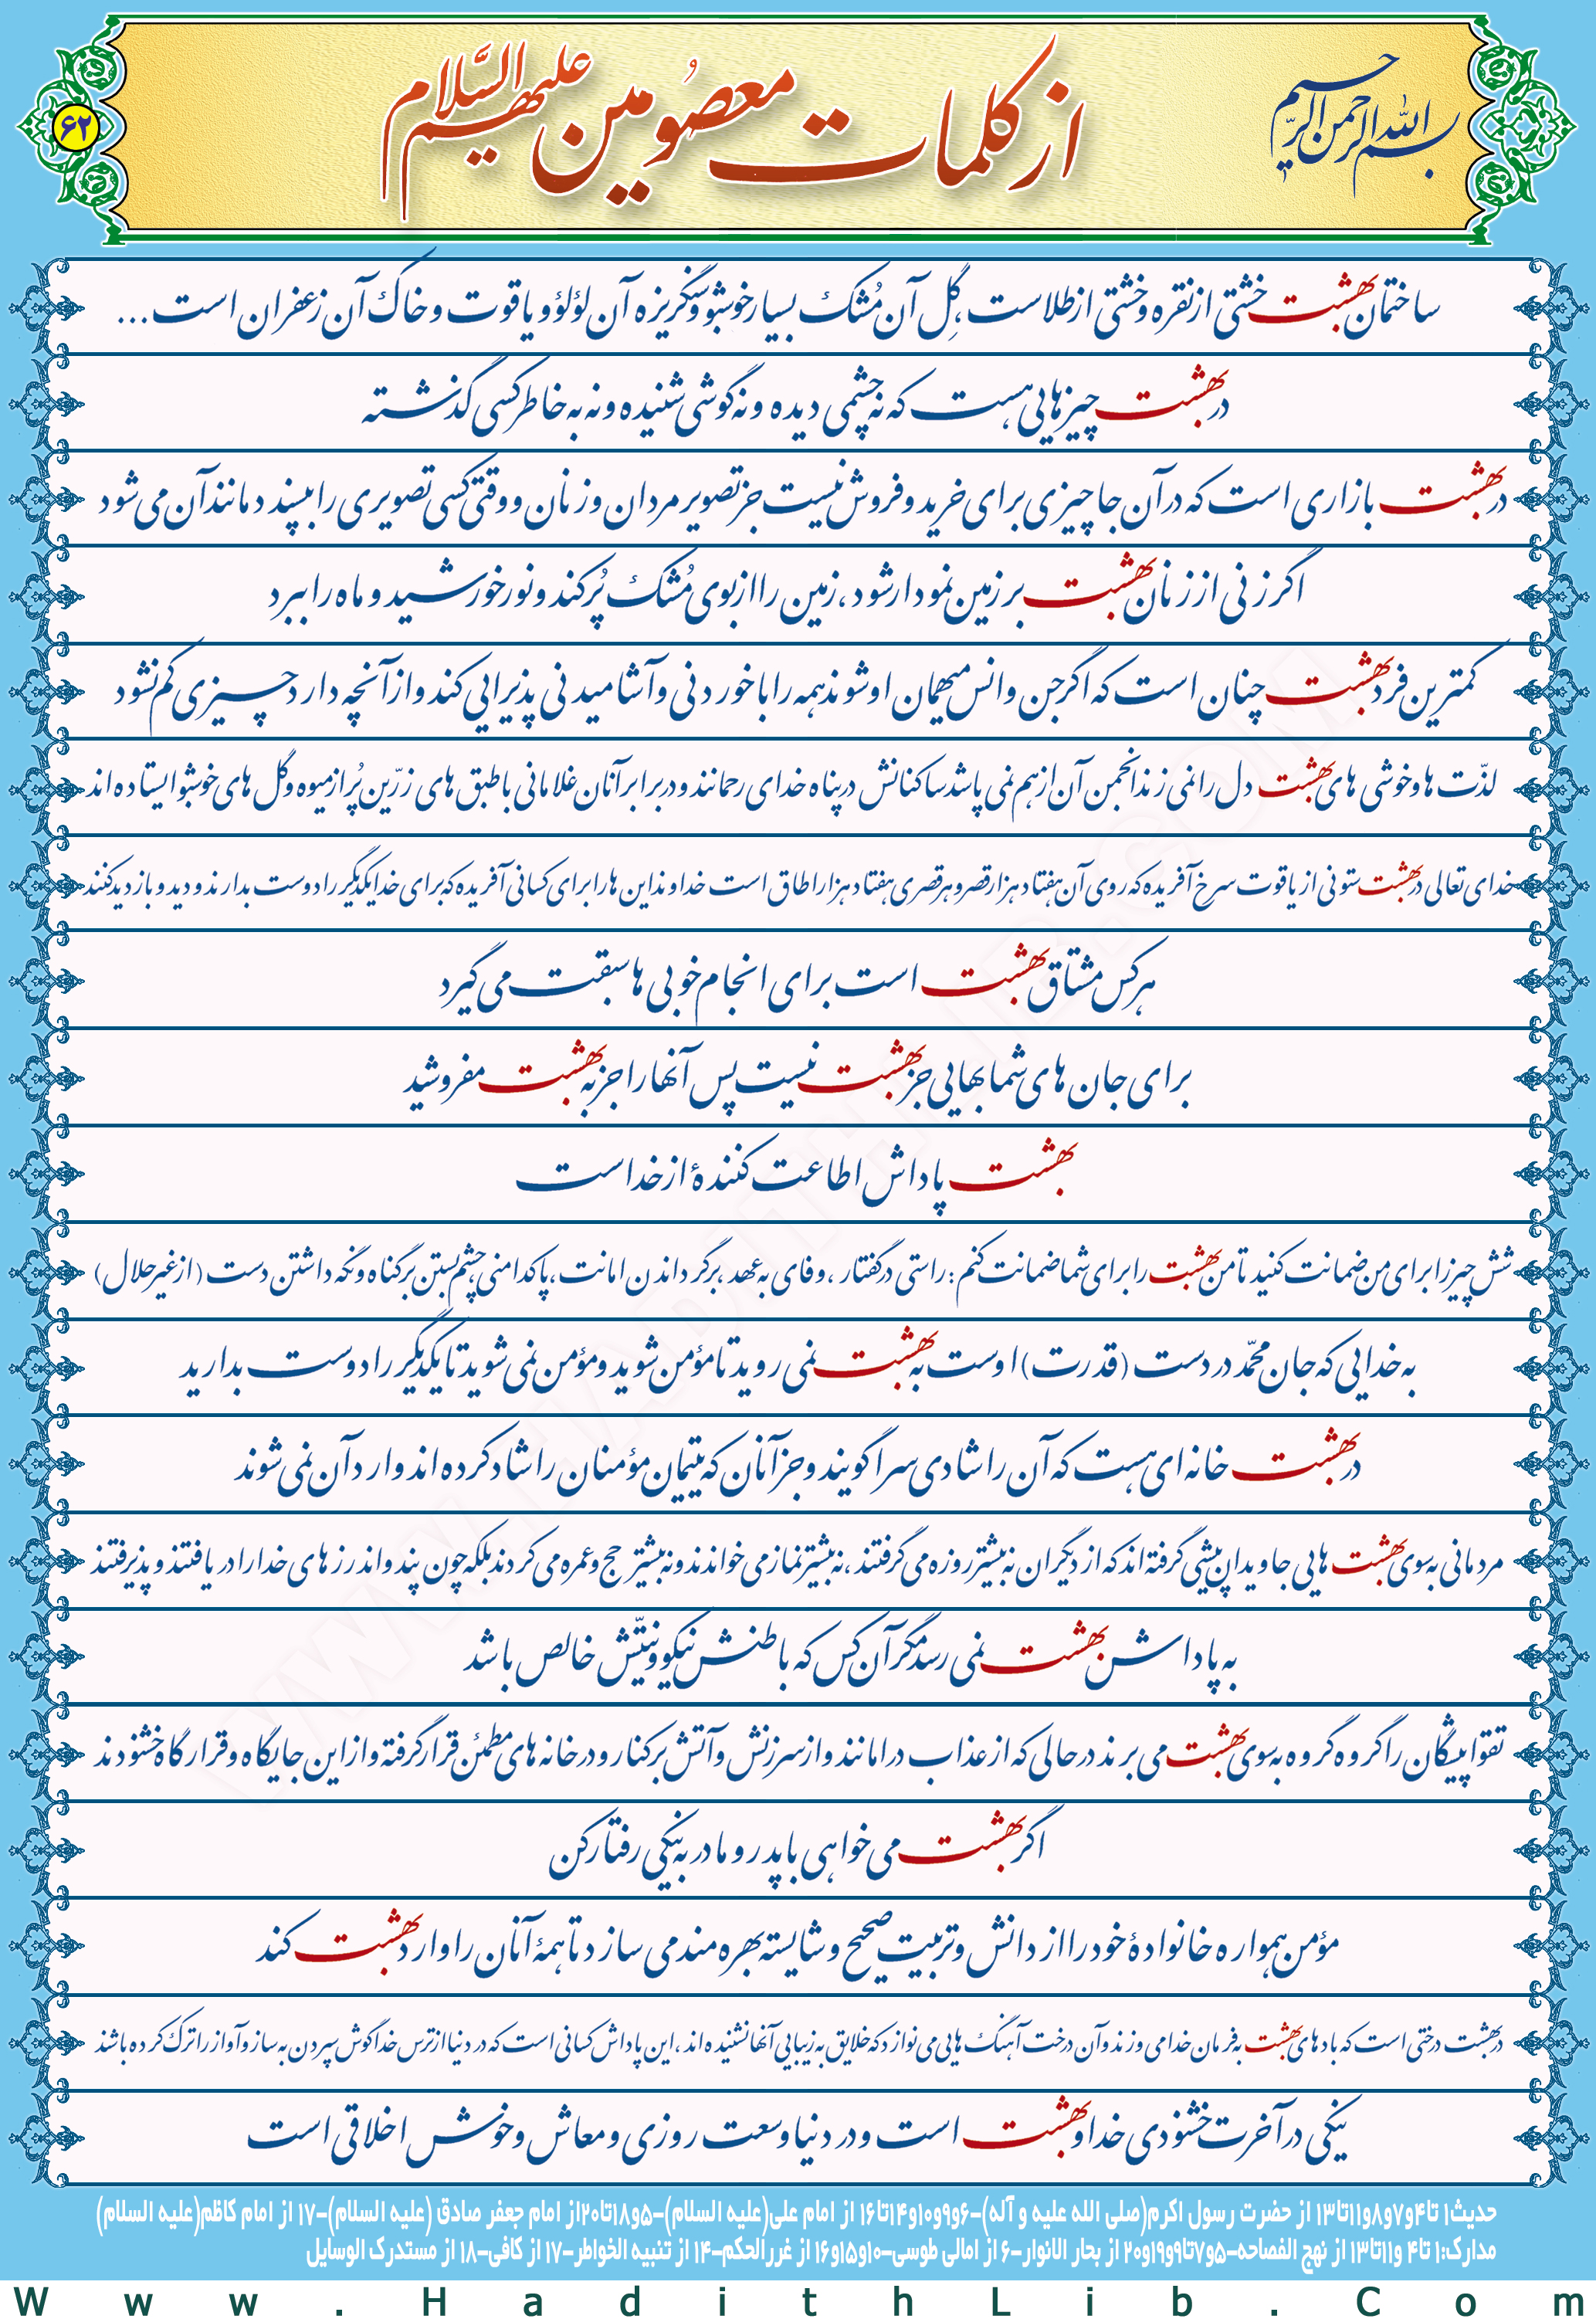 بسم الله الرحمن الرحیم
از کلمات معصومین علیهم السَّلام
۶۲
ساختمان بهشت خشتی از نقره و خشتی از طلاست، گِل آن مُشک بسیار خوشبو و سنگریزه آن لؤلؤ و یاقوت و خاک آن زعفران است...
در بهشت چیزهایی هست که نه چشمی دیده و نه گوشی شنیده و نه به خاطر کسی گذشته
در بهشت بازاری است که در آن جا چیزی برای خرید و فروش نیست جز تصویر مردان و زنان و وقتی کسی تصویری را بپسندد مانند آن می شود
اگر زنی از زنان بهشت بر زمین نمودار شود، زمین را از بوی مُشک پُر کند و نور خورشید و ماه را ببرد
کمترین فرد بهشت چنان است که اگر جن و انس میهمان او شوند همه را با خوردنی و آشامیدنی پذیرایی کند و از آنچه دارد چیزی کم نشود
لذّت ها و خوشی های بهشت دل را نمی زند انجمن آن از هم نمی پاشد ساکنانش در پناه خدای رحمانند و در برابر آنان غلامانی با طبق های زرّین پُر از میوه و گل های خوشبو ایستاده اند
خدای تعالی در بهشت ستونی از یاقوت سرخ آفریده که روی آن هفتاد هزار قصر و هر قصری هفتاد هزار اطاق است خداوند این ها را برای کسانی آفریده که برای خدا یکدیگر را دوست بدارند و دید و بازدید کنند
هر کس مشتاق بهشت است برای انجام خوبی ها سبقت می گیرد
برای جان های شما بهایی جز بهشت نیست پس آنها را جز به بهشت مفروشید
بهشت پاداش اطاعت کنندهٔ از خداست
شش چیز را برای من ضمانت کنید تا من بهشت را برای شما ضمانت کنم: راستی در گفتار، وفای به عهد، برگرداندن امانت، پاکدامنی، چشم بستن بر گناه و نگه داشتن دست (از غیر حلال)
به خدایی که جان محمّد در دست (قدرت) اوست به بهشت نمی روید تا مؤمن شوید و مؤمن نمی شوید تا یکدیگر را دوست بدارید
در بهشت خانه ای هست که آن را شادی سرا گویند و جز آنان که یتیمان مؤمنان را شاد کرده اند وارد آن نمی شوند
مردمانی به سوی بهشت هایی جاویدان پیشی گرفته اند که از دیگران نه بیشتر روزه می گرفتند، نه بیشتر نماز می خواندند و نه بیشتر حج و عمره می کردند بلکه چون پند و اندرزهای خدا را دریافتند و پذیرفتند
به پاداش بهشت نمی رسد مگر آن کس که باطنش نیکو و نیّتش خالص باشد
تقواپیشگان را گروه گروه به سوی بهشت می برند در حالی که از عذاب در امانند و از سرزنش و آتش برکنار و در خانه های مطمئن قرار گرفته و از این جایگاه و قرارگاه خشنودند
اگر بهشت می خواهی با پدر و مادر به نیکی رفتار کن
مؤمن همواره خانوادهٔ خود را از دانش و تربیت صحیح و شایسته بهره مند می سازد تا همهٔ آنان را وارد بهشت کند
در بهشت درختی است که بادهای بهشت به فرمان خدا می وزند و آن درخت آهنگ هایی می نوازد که خلایق به زیبایی آنها نشنیده اند، این پاداش کسانی است که در دنیا از ترس خدا گوش سپردن به ساز و آواز را ترک کرده باشند
نیکی در آخرت خشنودی خدا و بهشت است و در دنیا وسعت روزی و معاش و خوش اخلاقی است
حدیث۱ تا۴و۷و۸و۱۱تا۱۳ از حضرت رسول اکرم(صلی الله علیه و آله)-۶و۹و۱۰و۱۴تا۱۶ از امام علی(علیه السلام)-۵و۱۸تا۲۰از امام جعفر صادق (علیه السلام)-۱۷ از امام کاظم(علیه السلام)
مدارک:۱ تا۴ و۱۱تا۱۳ از نهج الفصاحه-۵و۷تا۹و۱۹و۲۰ از بحار الانوار-۶ از امالی طوسی-۱۰و۱۵و۱۶ از غررالحکم-۱۴ از تنبیه الخواطر-۱۷ از کافی-۱۸ از مستدرک الوسایل
Www.HadithLib.Com